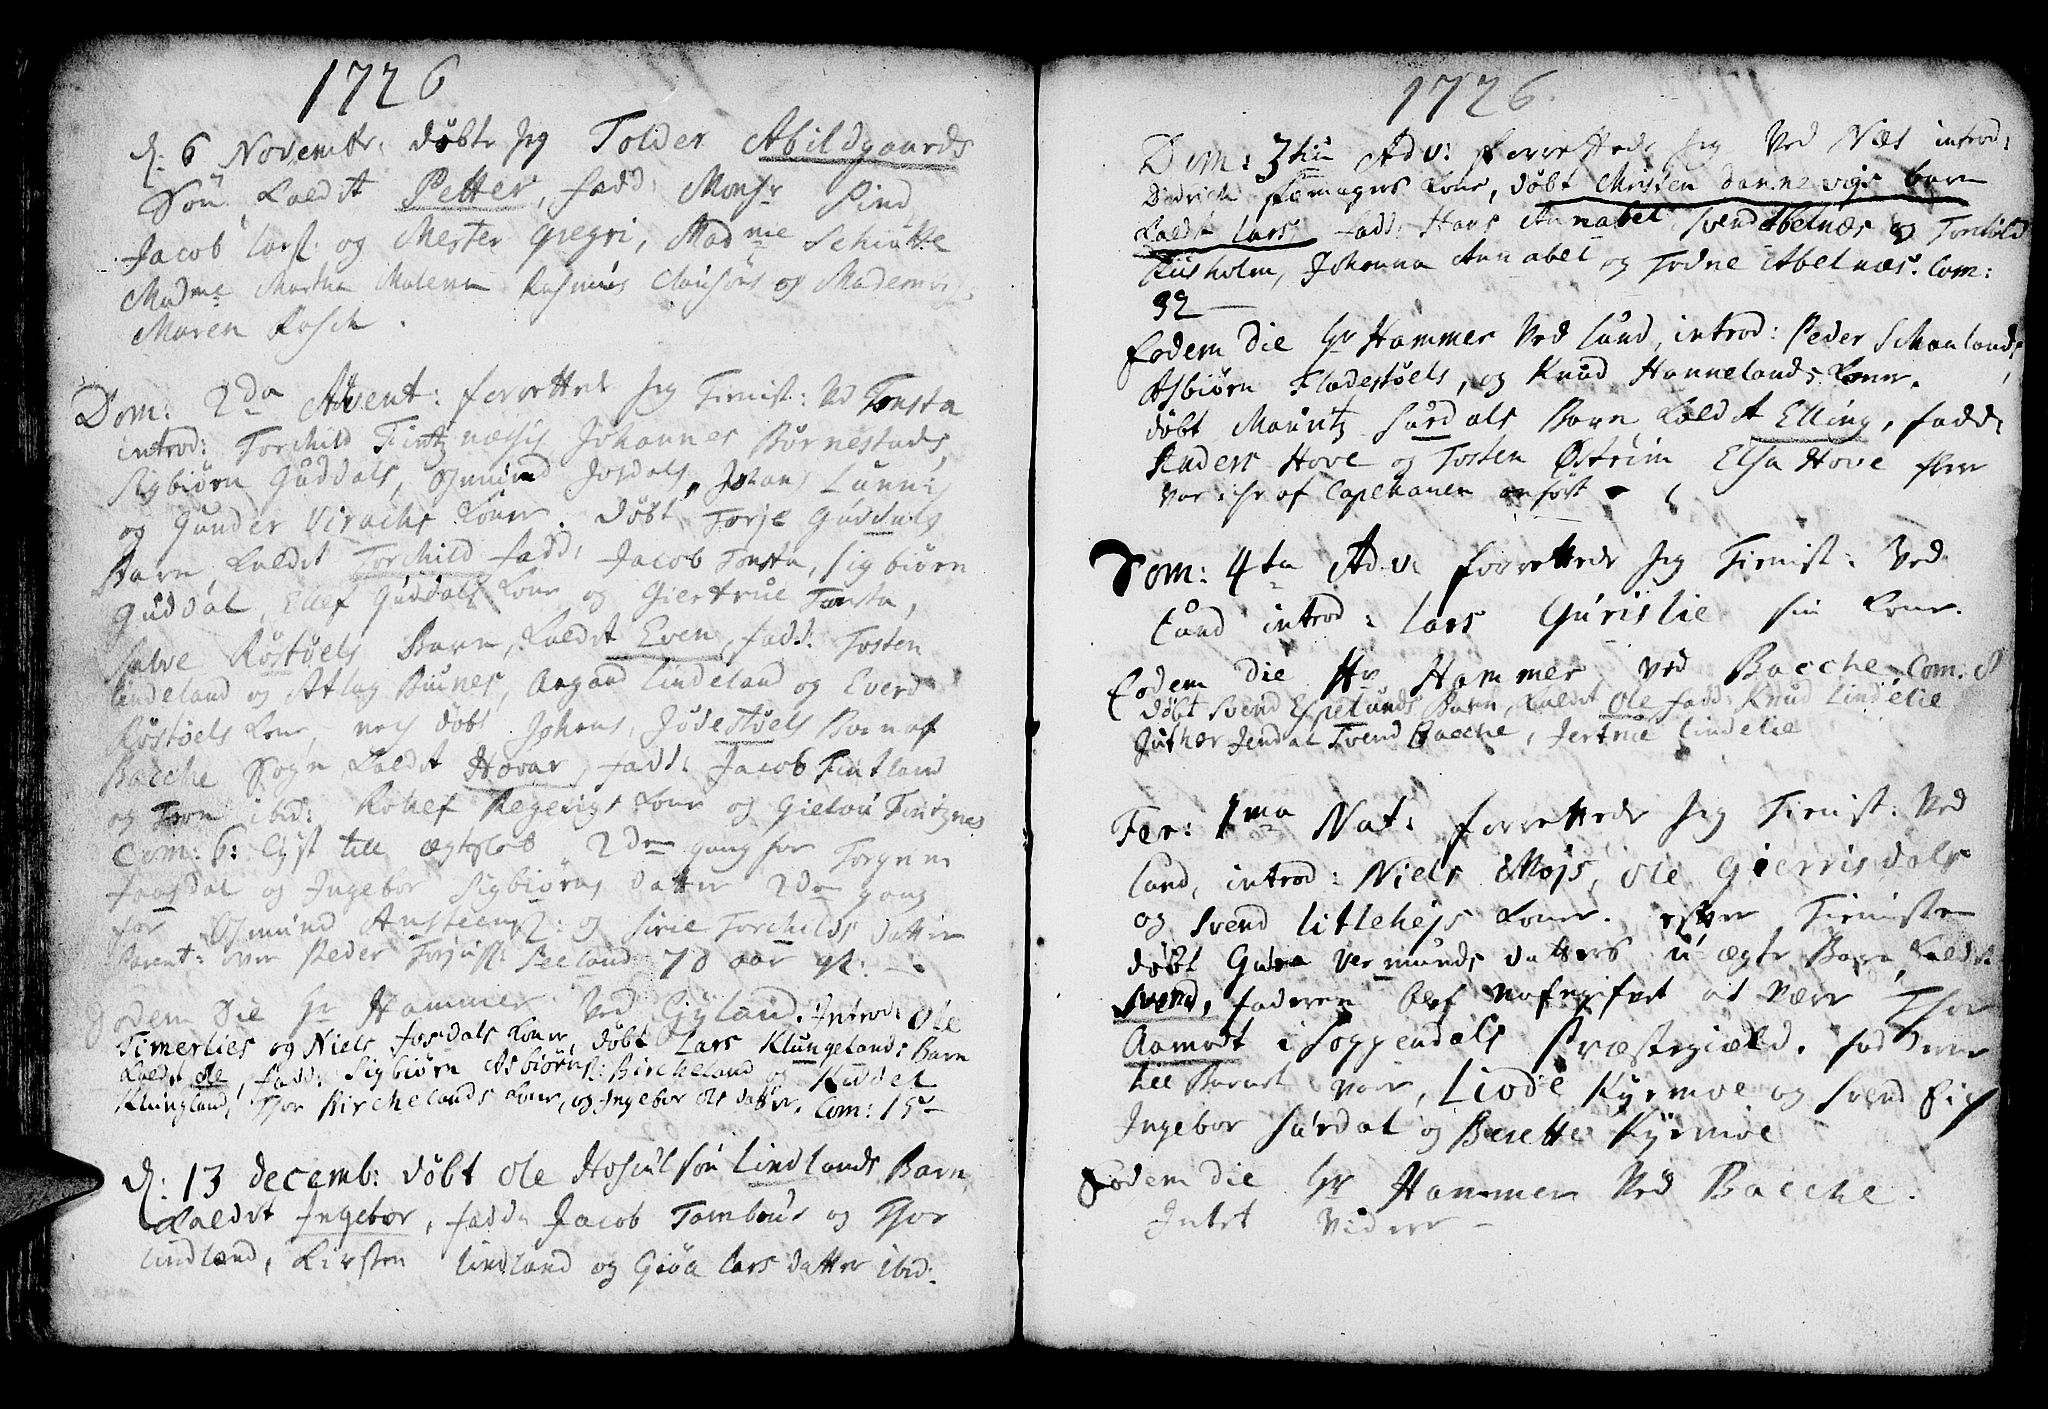 1726
d: 6 Novembr: døbte jeg Tolder Abildgaards
Søn, kaldet Petter, fadd: Monsr Pind,
Jacob Lars: og Mester Gregri, Madme Schiøtte
Madme Martha Malena Rasmus Clausøns og Mademois:
Maren Rosch.
Dom: 2da Advent: forrettede Jeg Tienist: ved Tonsta
introd: Torchild Fintznæsis Johannes Børnestads,
Sigbiørn Guddals, Osmund Josdals, Johans Lunnis
og Gunder Viraches koner. døbt Torje Guddals
Barn, kaldet Torchild fadd: Jacob Tonsta, Sigbiørn
Guddal, Ellef Guddals kone og Giertrue Tonsta,
Salve Røstøels Barn, kaldet Even, fadd: Tosten
Lindeland og Atlag Buunes, Aagaad Lindeland og Everd
Røstøels kone, noch døbt Johans Jødestøels Barn af
Bacche Sogn kaldet Hovar, fadd: Jacob Fintland
og Tron ibid: Rollef Regevigs kone og Gielou Fintznes
Com: 6: Lyst till ægteskab 2den gang for Torgrim
Josdal og Ingebor Sigbiørns datter 2den gang
for Osmund Ansteens: og Sirie Torchilds datter
Parent: over Peder Torjus: Seeland 70 aar gl:
Eodem Die Hr Hammer ved Gyland. Introd: Ole
Timerlies og Niels Josdals koner, døbt Lars Klungelands Barn
kaldet Ole, fadd: Sigbiørn Asbiørns: Bircheland og Kiddel
Klungland, Thor Birchelands kone, og Ingebor Ols datter. Com: 15
d: 13 decemb: døbt Ole Hoskulsøn Lindlands Barn,
kaldet Ingebor, fadd: Jacob Tambour og Thor
Lindland, Kirsten Lindland og Giøa Lars datter ibid:
1726.
Dom: 3tia Adv: forrettede Jeg ved Næs introd:
Didrich kone, døbt Christen dannevigs barn
kaldt Lars fadd: Hans Annabel Svend Abelnæs og Torkild
Riisholm, Johanna Annabel og Todne Abelnæs. Com:
92
Eodem die Hr Hammer ved Lund, introd: Peder Schaalands
Asbiørn Fladestøels, og Knud Hannelands koner.
døbt Mauritz Surdals Barn kaldet Elling, fadd:
Anders Hove og Tosten Østrim Elsa Hove flere
var ichr af Caplchanen anført
Dom: 4ta Adv: forrettede Jeg Tienist: ved
Lund introd: Lars Gurislie sin kone.
Eodem die Hr Hammer ved Bacche Com: 8
døbt Svend Espelunds Barn, kaldet Ole fadd: Knud Lindelie
Guthor Jendal Svend Bacche, Jertrue Lindelie
Fer: 1ma Nat: forrettede Jeg Tienist: ved
Lund, introd: Niels Mojs, Ole Gierrisdals
og Svend Litlehejs koner. efter Tienisten
døbt Gura Vermunds datters u-ægte Barn, kaldet
Svend, faderen blef at være Thor
Aamodt i Soggendals Præstegiæld. fadderne
till Barnet var, Liode Kyrmoe og Svend Eie
Ingebor Surdal og Berette Kyrmoe
Eodem die Hr Hammer ved Bacche.
Intet videre